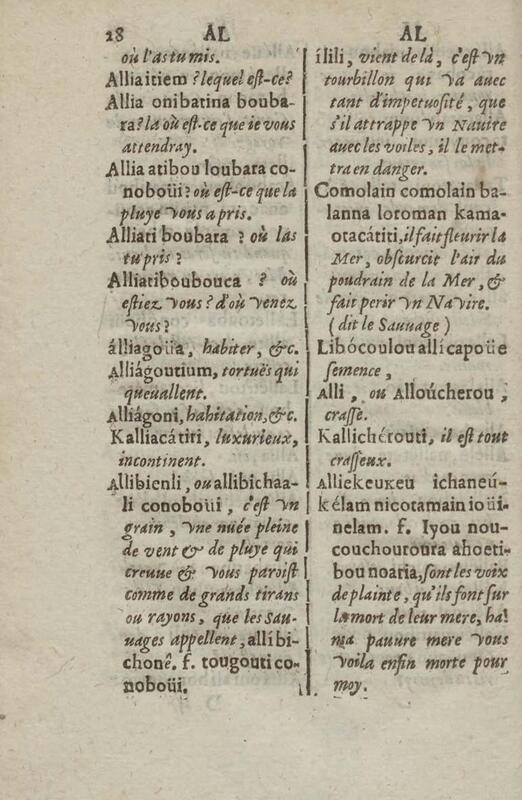 28 ÁL ÁL
où l'as tu mis.
Allia itiem ? lequel est-ce ?
Allia onibatina bouba-
ra ? la où est-ce que ie vous
attendray.
Allia atibou loubara co-
noboüi ? où est-ce que la
pluye vous a pris.
Alliati boubara ? où l'as
tu pris ?
Alliatiboubouca ? où
estiez vous ? d'où venez
vous ?
álliagoüa, habiter, &c.
Alliágoutium, tortuës qui
queuallent.
Alliágoni, habitation, &c.
Kalliacátiti, luxurieux,
incontinent.
Allibienli, ou allibichaa-
li conoboüi, c'est vn
grain, vne nüée pleine
de vent & de pluye qui
creuue & vous paroist
comme de grands tirans
ou rayons, que les Sau-
uages appellent, allíbi-
chonê. f. tougouti co-
noboüi.
ílili, vient de là, c'est vn
tourbillon qui va auec
tant d'impetuosité, que
s'il attrappe vn Nauire
auec les voiles, il le met-
tra en danger.
Comolain comolain ba-
lanna loroman kama-
oracátiti, il fait fleurir la
Mer, obscurcit l'air du
poudrain de la Mer, &
fait perir vn Navire.
(dit le Sauuage)
Libócoulou allí capoüe
semence,
Alli, ou Alloúcherou,
crasse.
Kallichérouti, il est tout
crasseux.
Alliekeukeu ichaneú-
kélam nicotamain ioüi-
nelam. f. Iyou nou-
couchouroura ahoeti-
bou noaria, sont les voix
de plainte, qu'ils font sur
la mort de leur mere, ha !
ma pauure mere vous
voila enfin morte pour
moy.